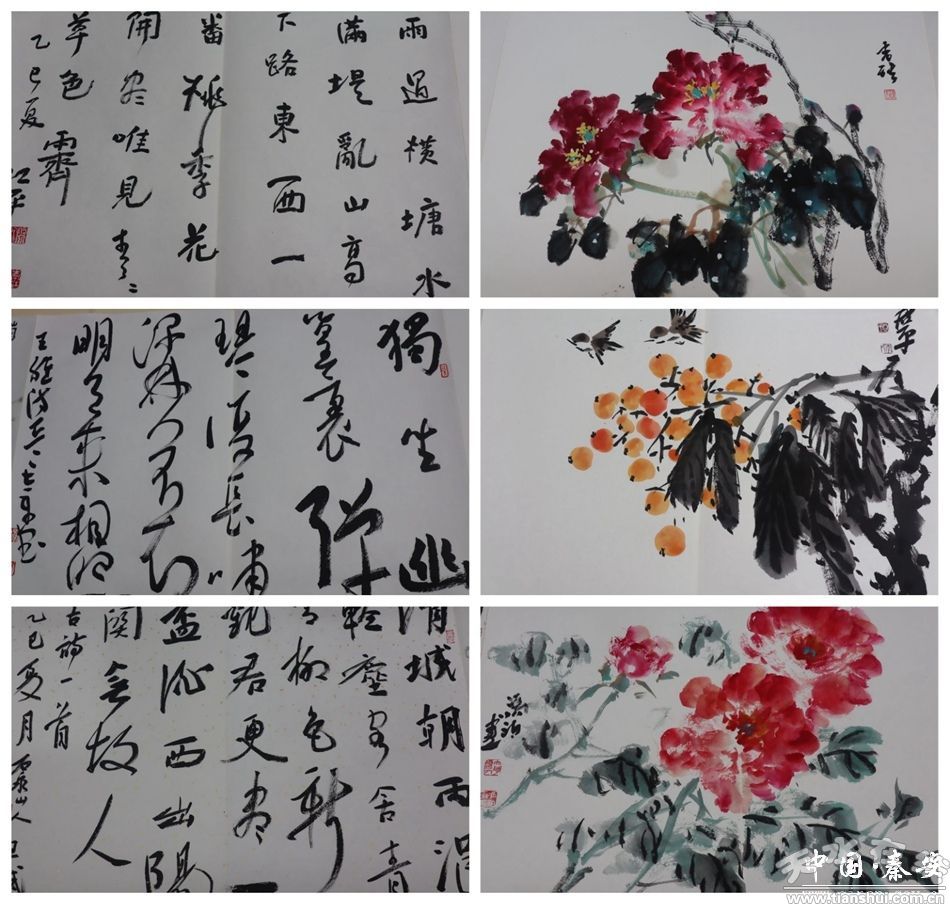 雨過横塘水
滿堤亂山高
下路東西一
番桃李花
開盡唯見青〻
草色齊
乙巳夏
獨坐幽
篁裏彈
琴復長嘯
深林人不知
明月來相照
王維詩
渭城朝雨浥
輕塵客舍青
〻柳色新
勸君更盡一
盃酒西出陽
關無故人
古詩一首
乙巳夏月
中国·秦安
www.tianshui.com.cn